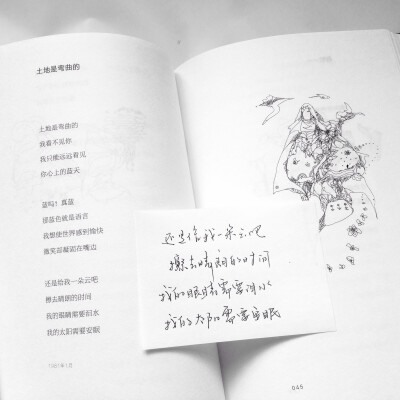 土地是弯曲的
土地是弯曲的
我看不见你
我只能远远看见
你心上的蓝天
蓝吗？真蓝
那蓝色就是语言
我想使世界感到愉快
微笑却凝固在嘴边
还是给我一朵云吧
擦去晴朗的时间
我的眼睛需要泪水
我的太阳需要安眠
1981年1月
还是给我一朵云吧
擦去晴朗的时间
我的眼睛需要泪水
我的太阳需要安眠
045